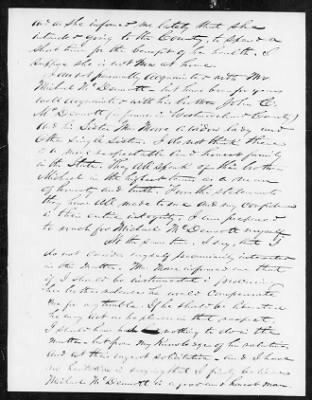 and as she informed me lately that she
intends going to the Country, to spend a
short time for the benefit of her health, I
suppose she is not now at home.
I am not personally acquainted with Mr
Michael McDermott but have been for years
well acquainted with his brother John C.
McDermott (a farmer in Westmoreland County)
and his Sister Mrs Moore a widow lady and
other Single Sisters. I do not think there
is a more respectable and honest family
in the State. They all speak of their brother
Michael in the highest terms as a man
of honesty and truth. From the statements
they have all made to me and my confidence
in their entire integrity, I am prepared
to vouch for Michael McDermott myself.
At the same time, I say, that I
do not consider myself pecuniarily interested
in the matter. Mrs Moore informed me that
if I should be instrumental in procuring
her brothers release she would compensate
me for my trouble. If she should be
he may act as he pleases in that respect
I should have had nothing to do with the
matter but from my knowledge of his relatives
and at their urgent solicitation - and I have
no hesitation in saying that I firmly believe
Michael McDermott is a good and honest man.